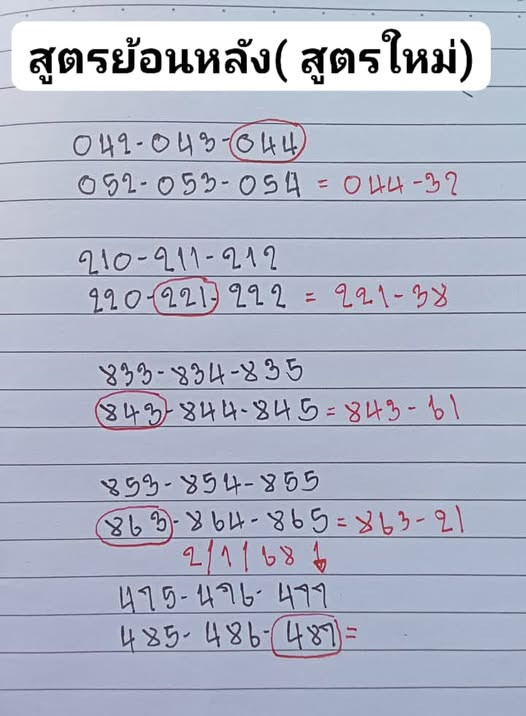 สูตรย้อนหลัง( สูตรใหม่)
042-043-044
052-053-054 = 044-32
210-211-212
220-221-222 = 221-38
833-834-835
843-844-845 = 843-61
853-854-855
863-864-865 = 863-21
2/1/68 ↓
475-476-477
485-486-487 =